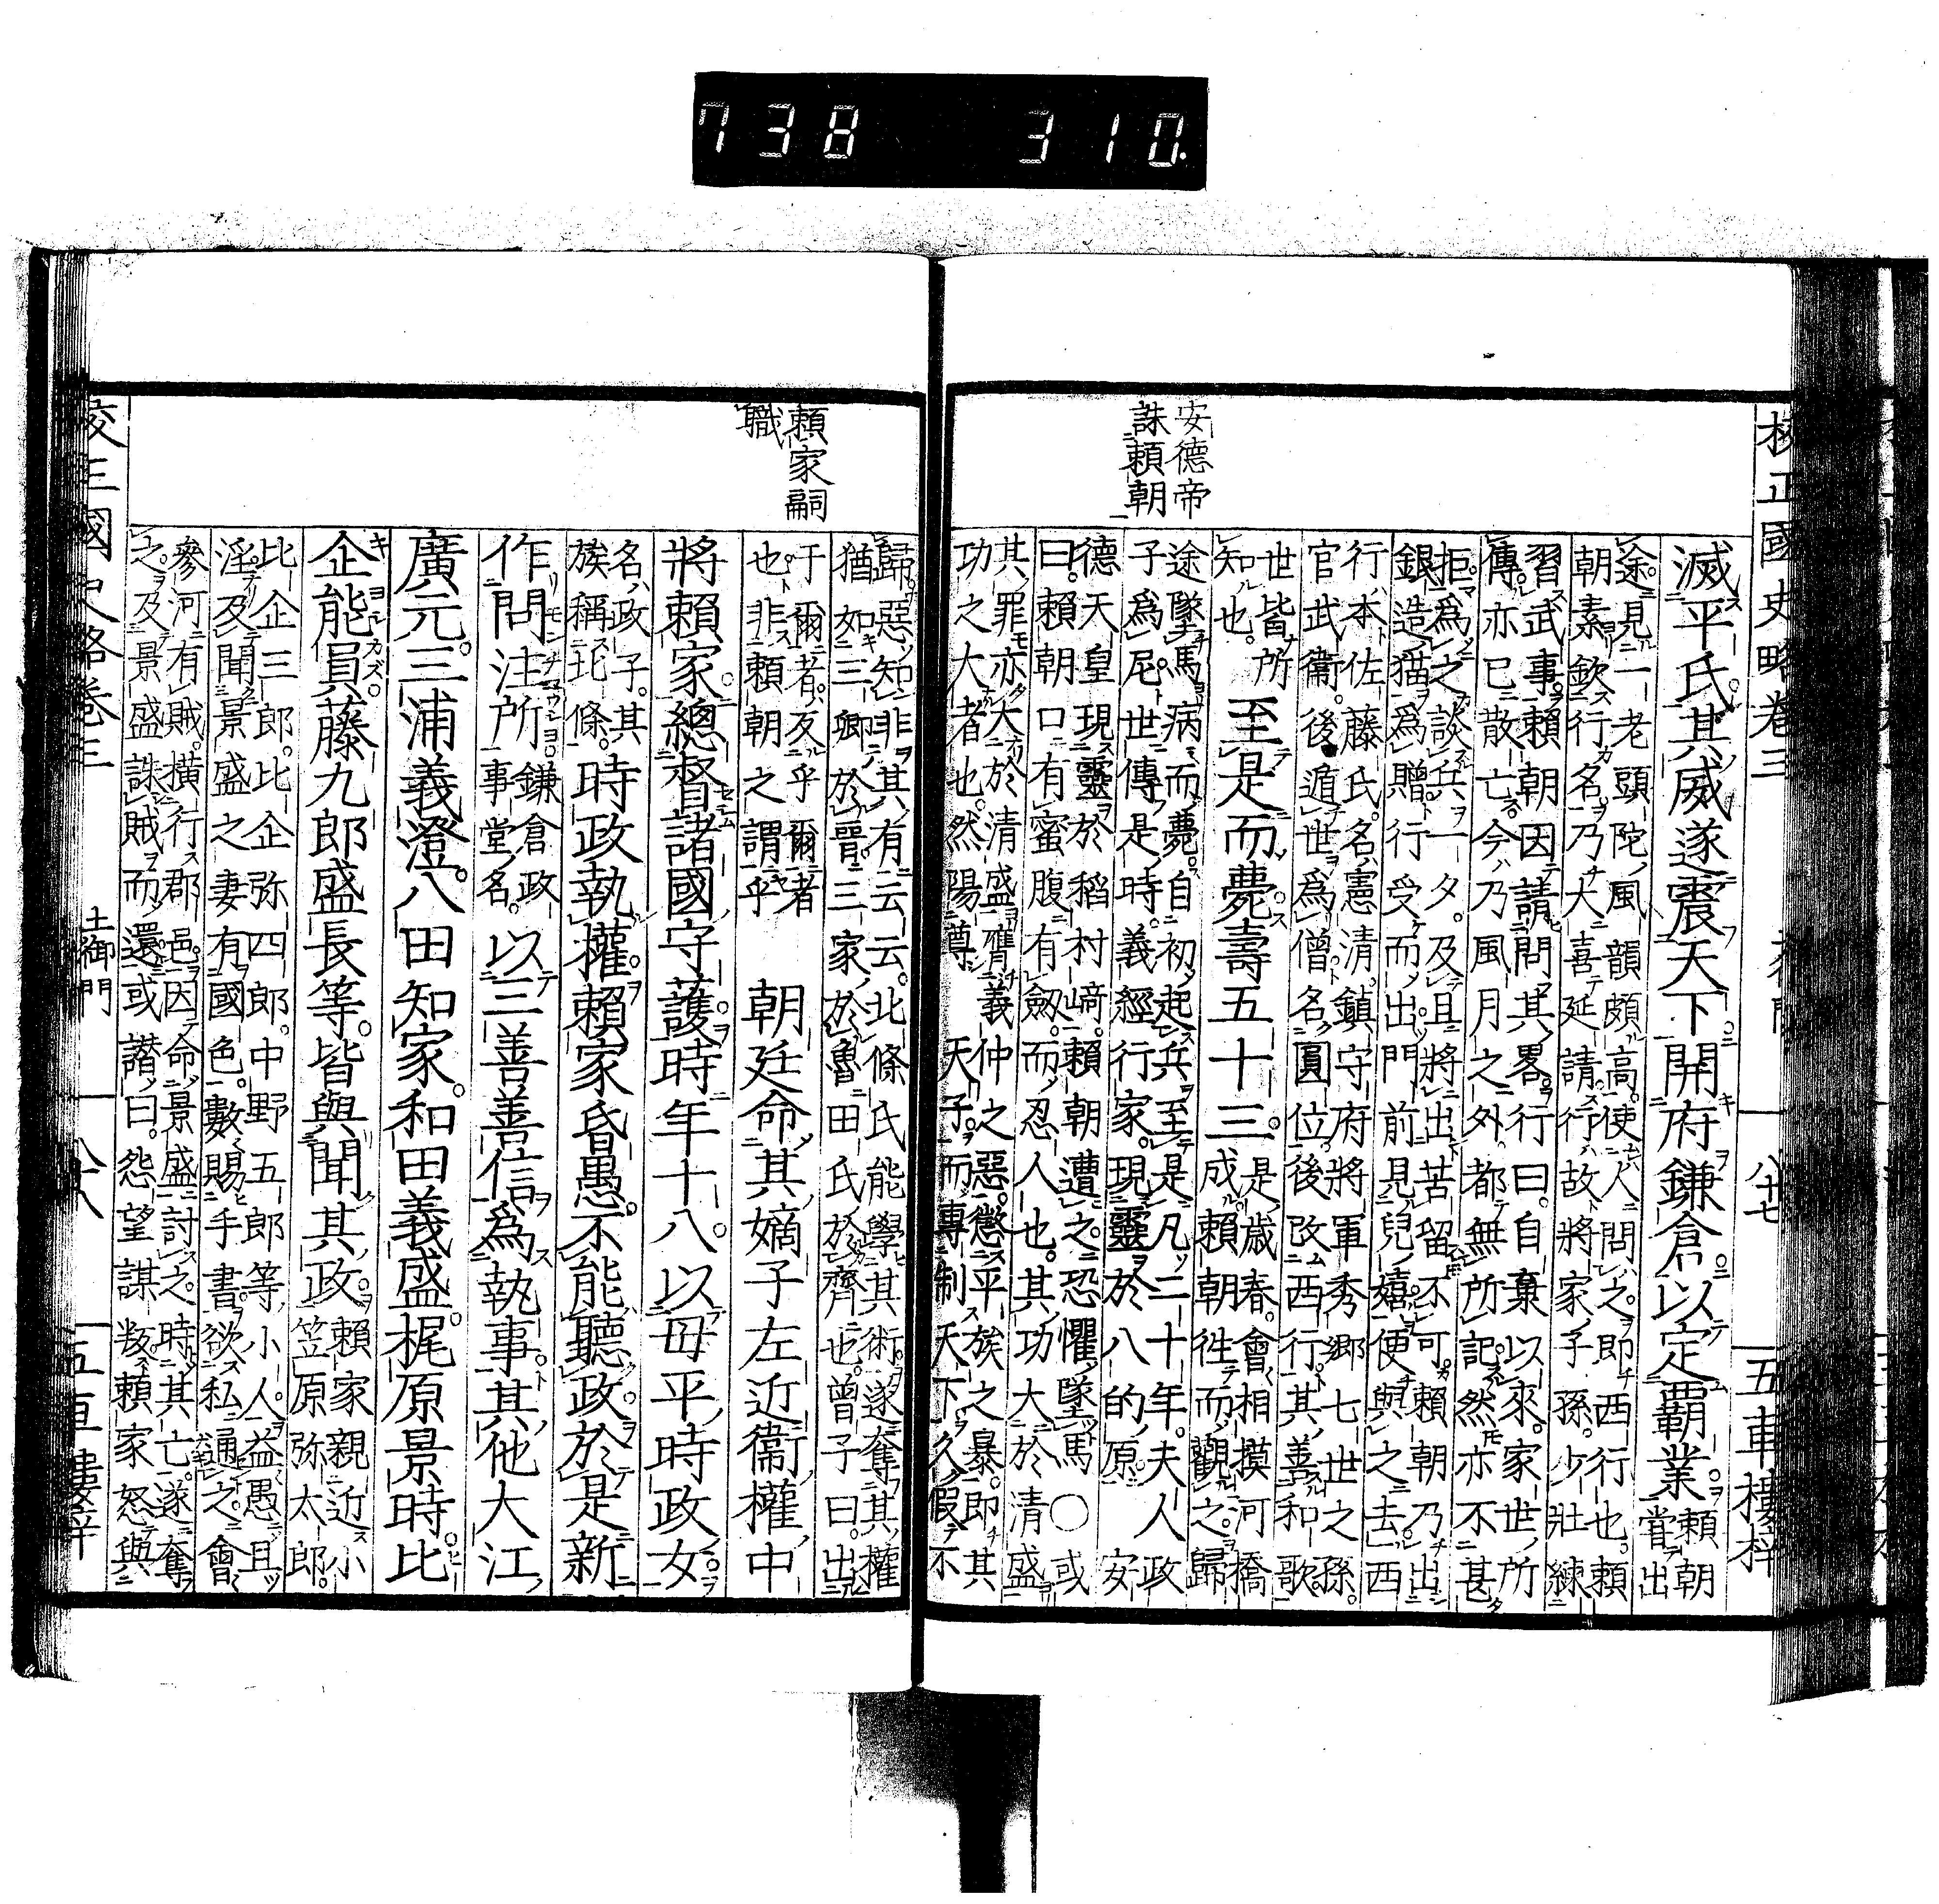 738 310.
校正國史略卷三
八十七
五車樓梓
安德帝
誅賴朝
滅平氏其威遂震天下開府鎌倉以定覇業
賴朝
嘗出
途見一老頭陀風韻頗高使人問之即西行也賴
朝素欽行名乃大喜延請行故將家子孫少壯練
習武事賴朝因請問其畧行曰自棄以來家世所
傳亦已散亡今乃風月之外都無所記然亦不甚
拒爲之談兵一夕及且將出苦留不可賴朝乃出
銀造猫爲贈行受而出門前見兒嬉便與之去西
行本佐藤氏名憲清鎮守府將軍秀郷七世之孫
官武衞後遁世爲僧名圓位後改西行其善和歌
世皆所
知也
至是而薨壽五十三
是歲春會相摸河橋
成賴朝徃而觀之歸
途墜馬病而薨自初起兵至是凡二十年夫人政
子爲尼世傳是時義經行家現靈於八的原安
德天皇現靈於稻村﨑賴朝遭之恐懼墜馬〇或
曰賴朝口有蜜腹有劔而忍人也其功大於清盛
其罪亦大於清盛膺義仲之惡懲平族之暴即其
功之大者也然陽尊天子而專制天下久假不
賴家嗣
職
歸惡知非其有云云北條氏能學其術遂奪其權
猶如三卿於晋三家於魯田氏於齊也曾子曰出
于爾者反乎爾者
也非賴朝之謂乎
朝廷命其嫡子左近衞權中
將賴家總督諸國守護時年十八以母平時政女
名政子其
族稱北條
時政執權賴家昏愚不能聽政於是新
作問注所
鎌倉政
事堂名
以三善善信爲執事其他大江
廣元三浦義澄八田知家和田義盛梶原景時比
企能員藤九郎盛長等皆與聞其政
賴家親近小
笠原弥太郎
比企三郎比企弥四郎中野五郎等小人益愚且
淫及聞景盛之妻有國色數賜手書欲私通之會
參河有賊橫行郡邑因命景盛討之時其亡遂奪
之及景盛誅賊而還或譖曰怨望謀叛賴家怒與
土御門
八十八